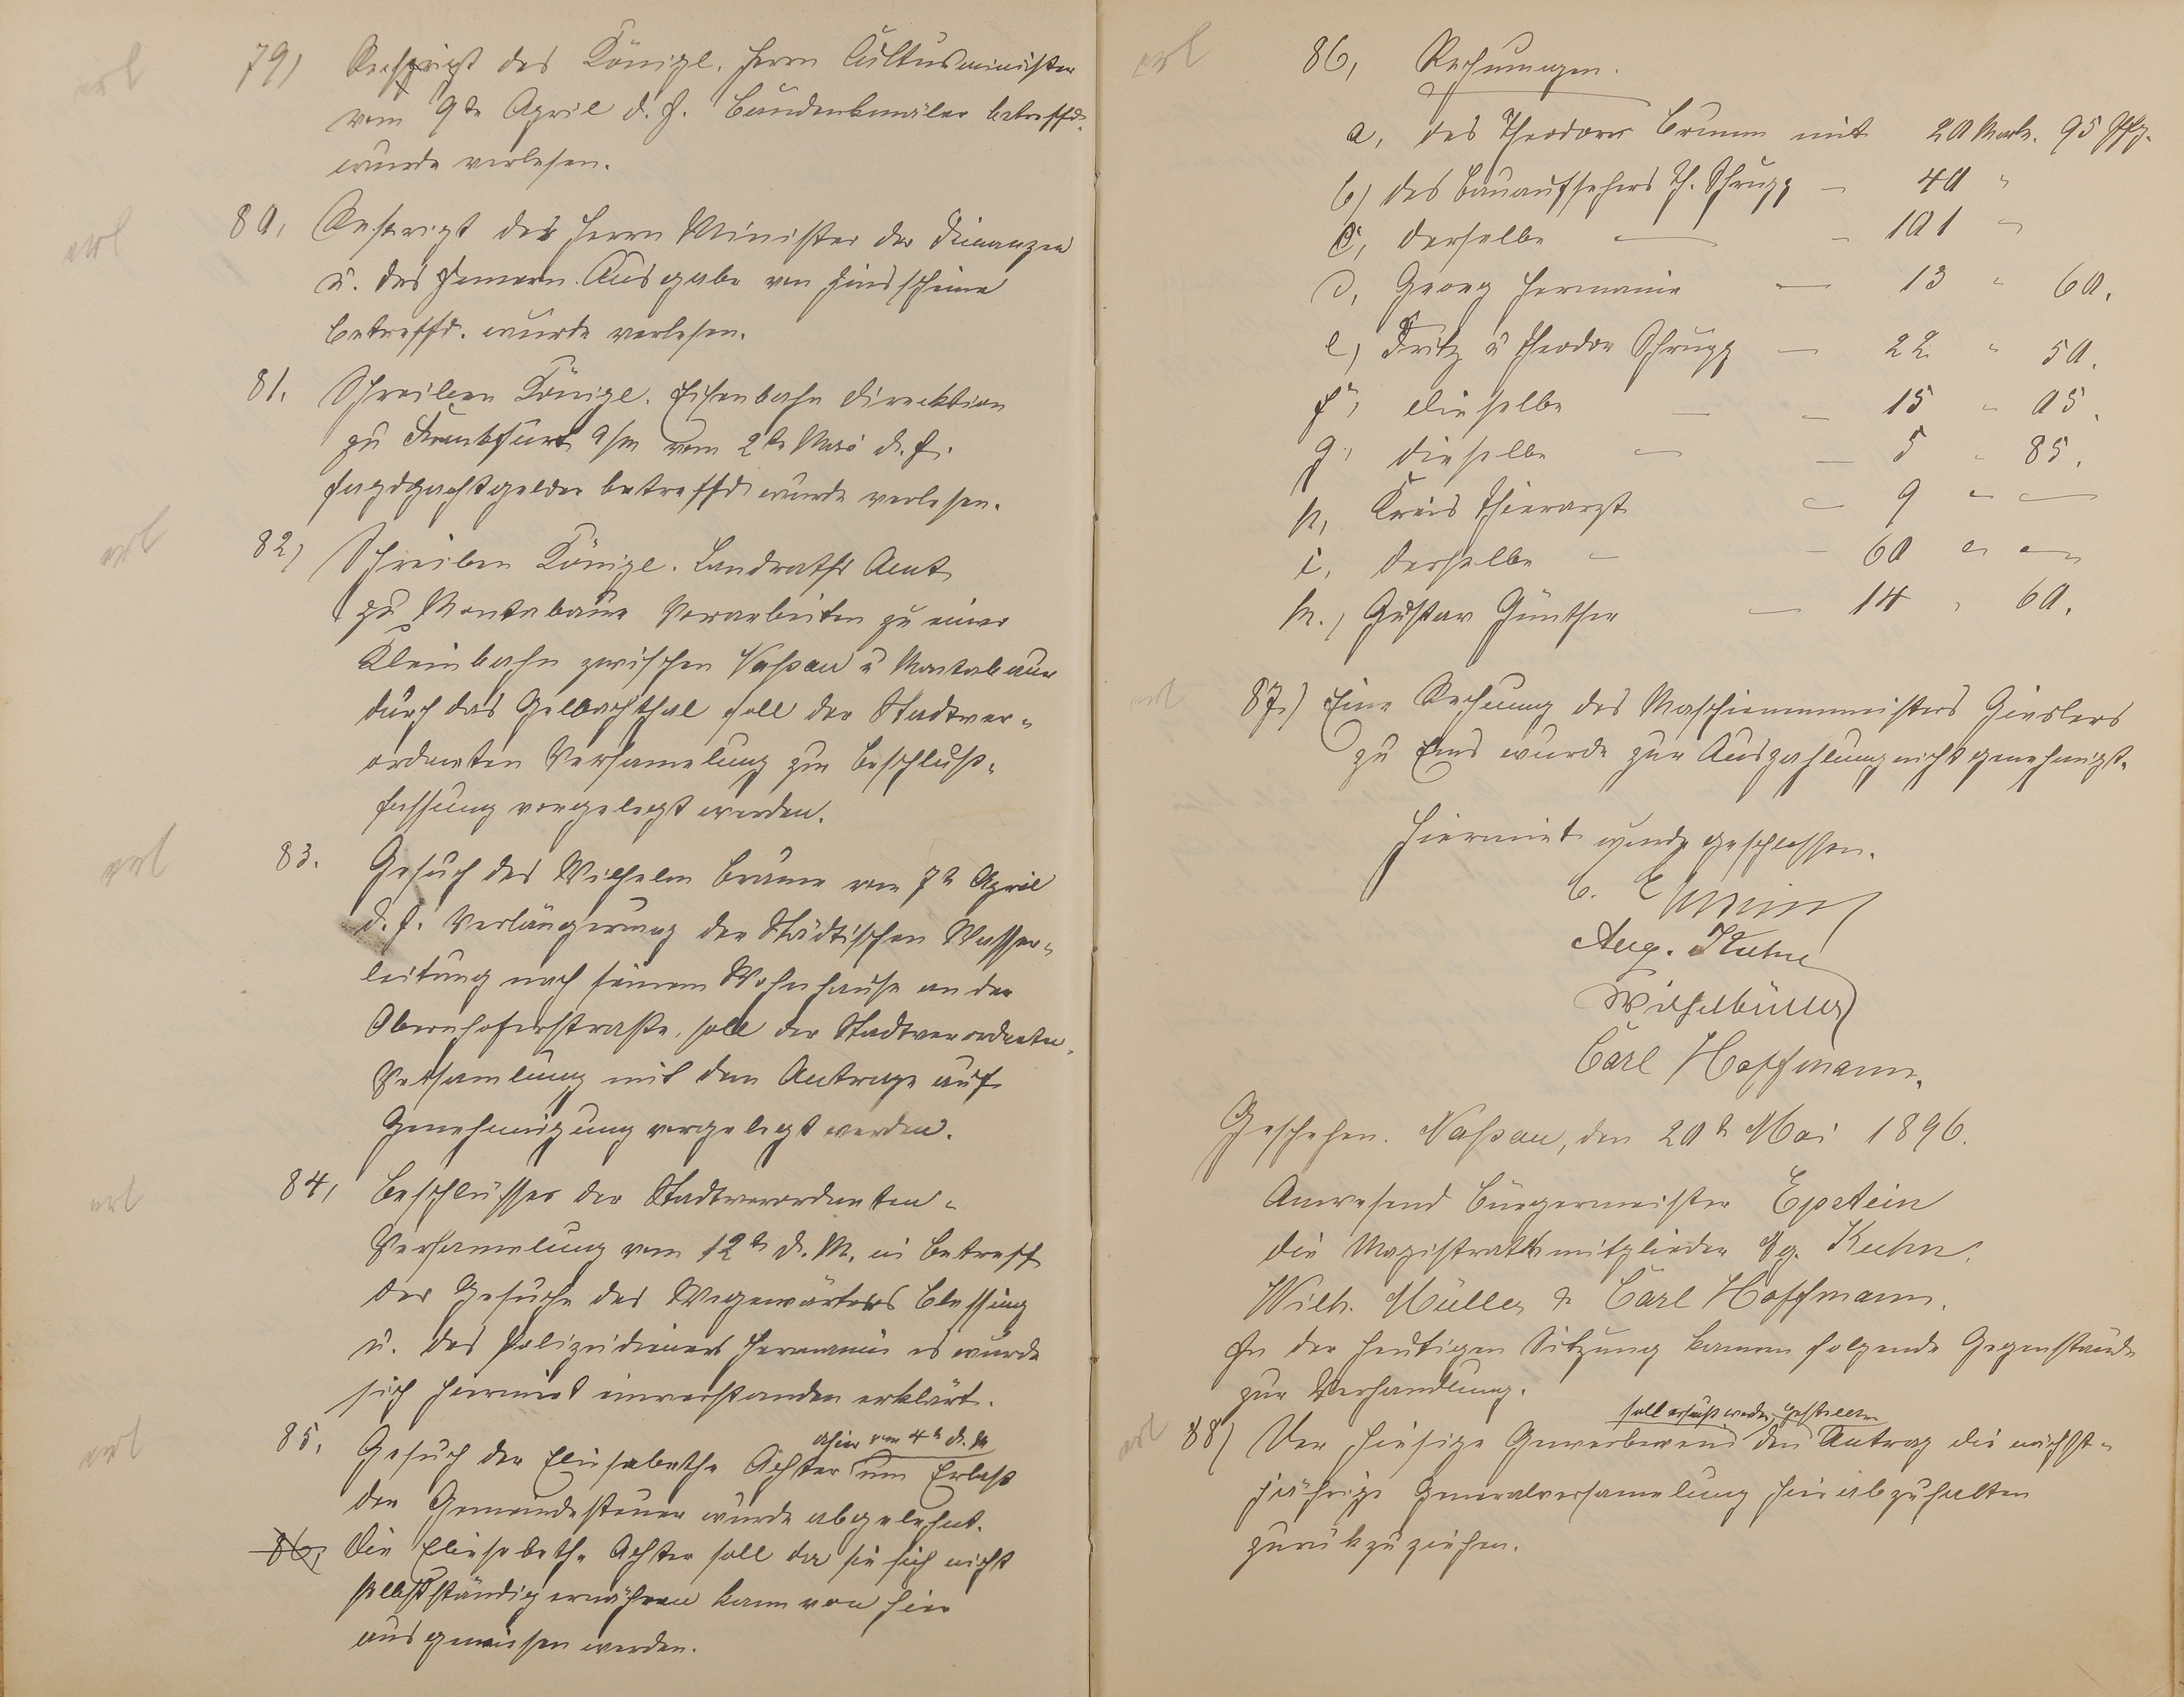 erl 79) Rescript des Königl. Herrn Cultusminister
vom 9tn April d. J. Baudenkmäler betreffd.
wurde verlesen.
erl 80, Rescript des Herrn Minister der Finanzen
u. des Jnnern Ausgabe von Zinsscheine
betreffd. wurde verlesen.
81. Schreiben Königl. Eisenbahn direcktion
zu Frankfurt a/m vom 2tn Mai d. J.
Jagdpachtgelder betreffd wurde verlesen.
erl 82) Schreiben Königl. Landraths Amt
zu Montabaur Vorarbeiten zu einer
Kleinbahn zwischen Naßau u Montabaur
durch das Gelbachthal soll der Stadtver-
ordneten Versamelung zur Beschluß-
fassung vorgelegt werden.
erl 83. Gesuch des Wilhelm Bruum vom 7tn April
d. J. Verlängerung der Städtischen Wasser-
leitung nach seinem Wohnhause an der
Obernhoferstraße, soll der Stadtverordneten-
Versamlung mit dem Antrage auf
Genehmigung vorgelegt werden.
erl 84, Beschlüsses der Stadtverordneten-
Versamelung vom 12tn d. M. in Betreff
der Gesuche des Wegewärters Blessing
u. des Polizeidieners Hermanni es wurde
sich hiermit einverstanden erklärt.
erl 85, Gesuch der Elisabethe Achter um Erlaß
vom 4tn d. M
der Gemeindesteuer wurde abgelehnt.
86, Die Eliesabethe Achter soll da sie sich nicht
selbstständig ernähren kann von hier
ausgewiesen werden.
erl 86, Rechnungen.
a, des Theodor Bruum mit 20 Mark. 95 Pfg.
b) des Bauaufsehers Th. Schrupp — 40 "
c, derselbe — — 101 "
d, Georg Hermanni — 13 " 60.
e) Fritz u Theodor Schrupp — 22 " 50.
f, dieselbe — — 15 " 05.
g, dieselbe — — 5 " 85.
h, Kreis Thierarzt — 9 " —
i, derselbe — — 60 " —
k., Gustav Günther — 14 " 60.
erl 87.) Eine Rechnung des Maschienenmeisters Gieslers
zu Ems wurde zur Auszahlung nicht genehmigt.
Hiermit wurde geschlossen.
Aug. Kuhn
Wilh. Müller
Carl Hoffmann.
Geschehen. Naßau, den 20tn Mai 1896.
Anwesend Bürgermeister Epstein
die Magistratsmitglieder Ag. Kuhn,
Wilh. Müller & Carl Hoffmann.
In der heutigen Sitzung kamen folgende Gegenstände
zur Verhandlung.
soll ersucht werden, gestellten
erl 88) Der hiesige Gewerbeverein den Antrag die nächst-
jährige Generalversamelung hier abzuhalten
zurükzuziehen.